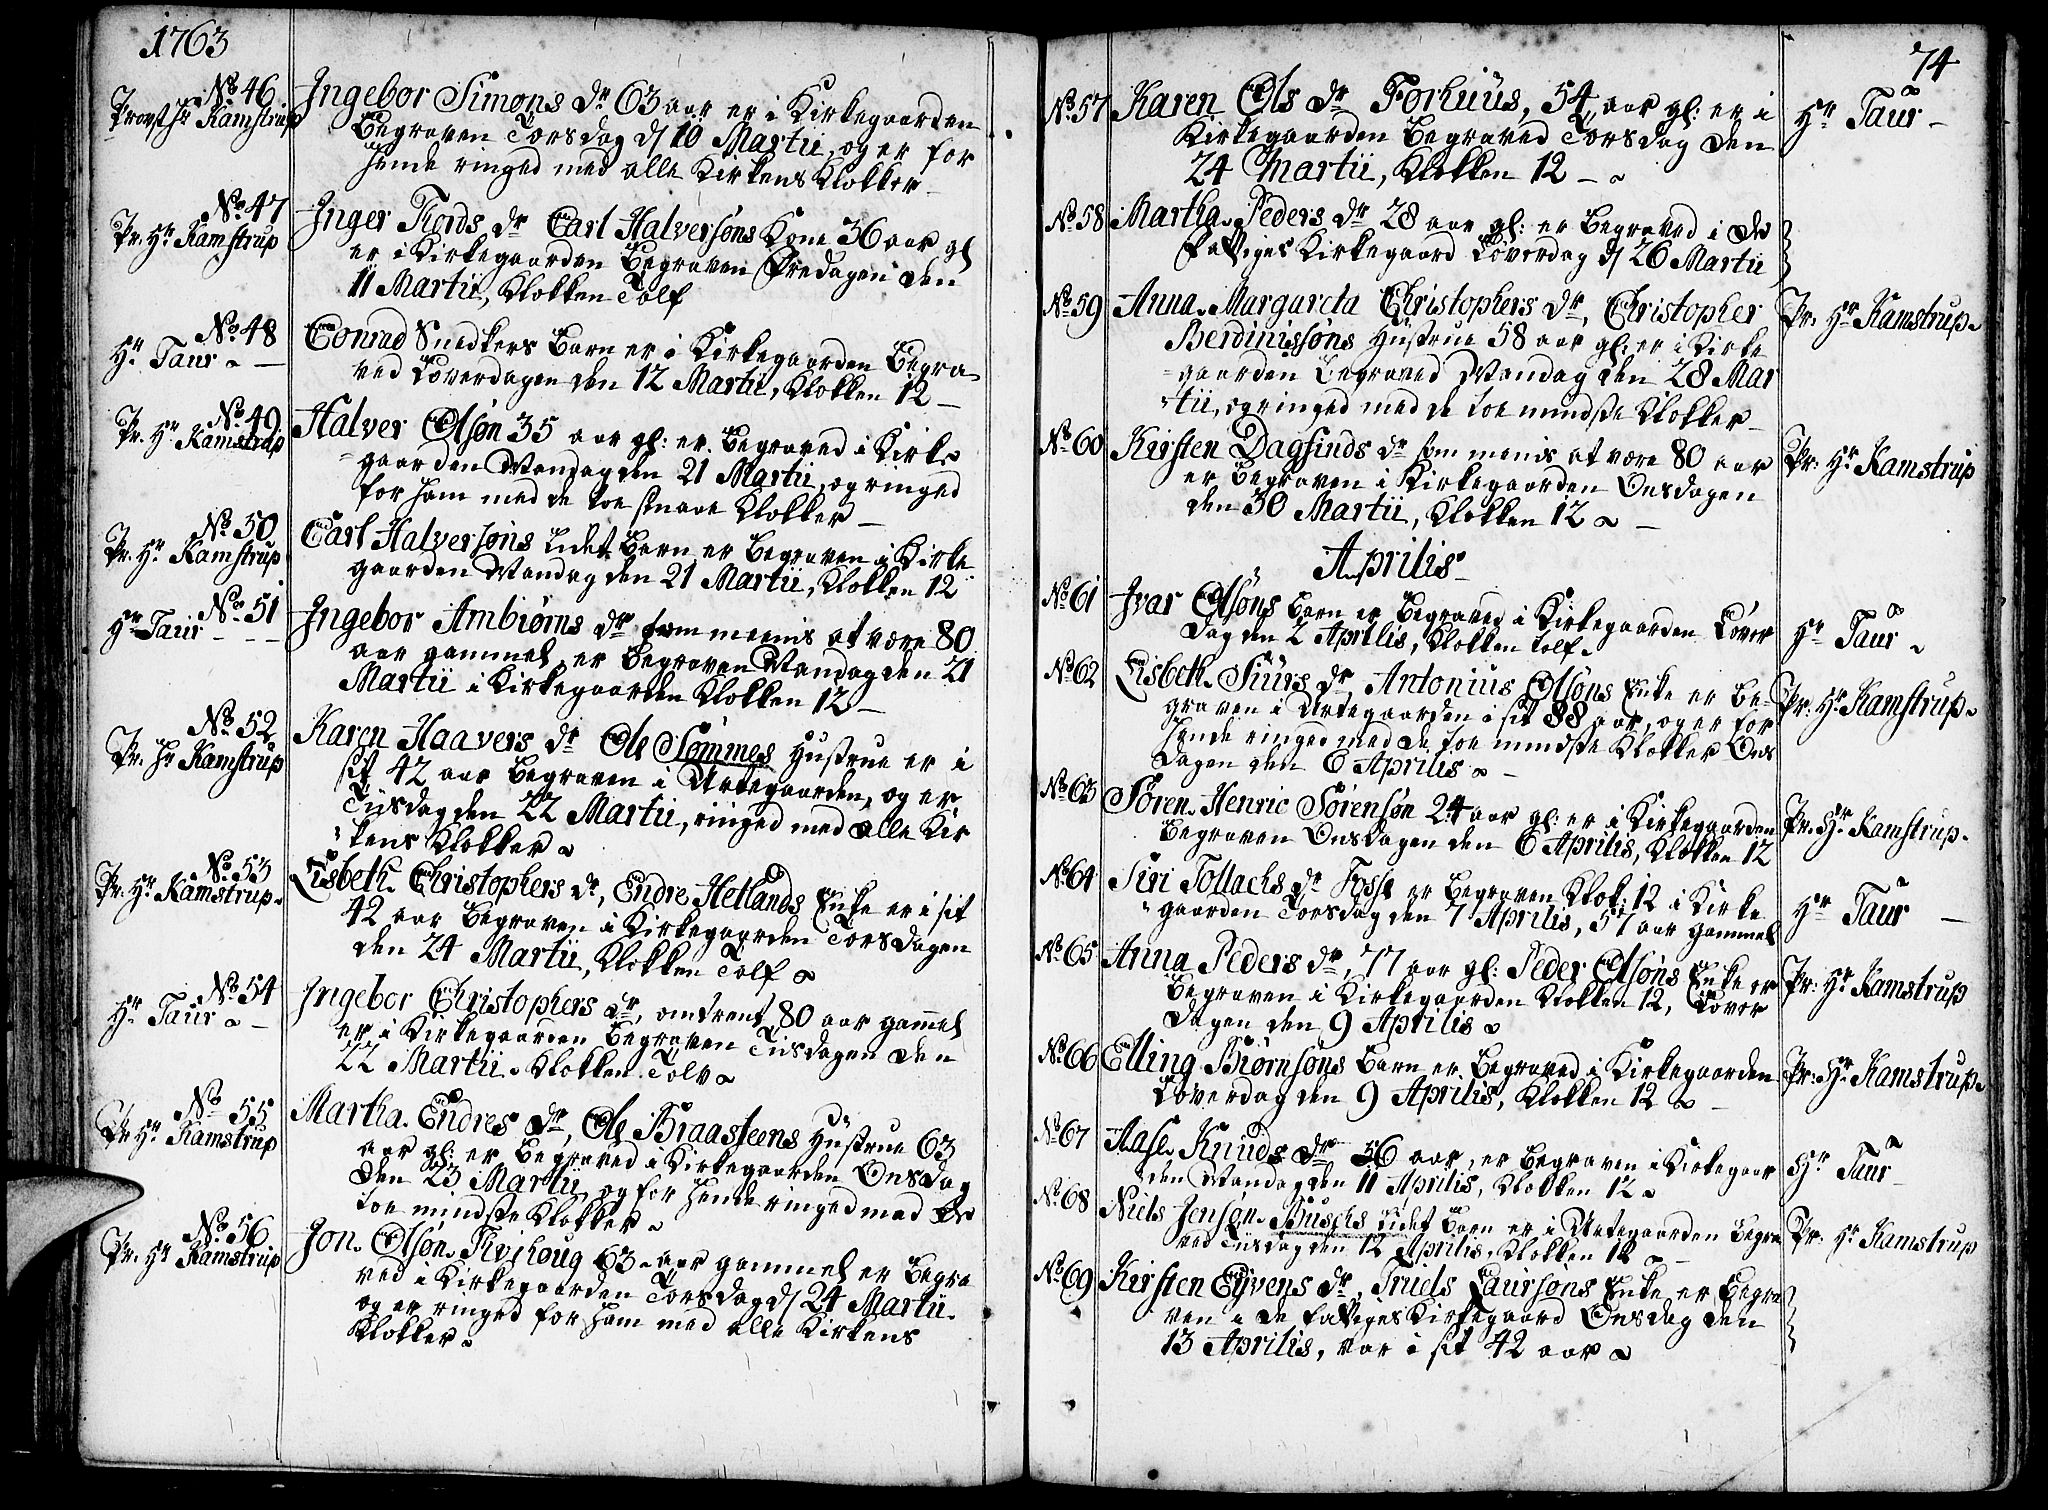 1763
No. 46
Provst Hr Kamstrup
Ingebor Simons dr 63 aar er i Kirkegaarden
Begraven Torsdag d/ 10 Martii, og er for
hende ringed med alle Kirkens Klokker
No. 47
Pr. Hr Kamstrup
Inger Tiords dr Carl Halversøns Kone 36 aar gl
er i Kirkegaarden Begraven Fredagen den
11 Martii, Klokken Tolf
No. 48
Hr Taur
Conrad Snedkers Barn er i Kirkegaarden Begra
ved Løverdagen den 12 Martii, Klokken 12
No. 49
Pr. Hr Kamstrup
Halver Olsøn 35 aar gl: er Begraved i Kirke
gaarden Mandag den 21 Martii, og ringed
for ham med de toe smaae Klokker
No. 50
Pr. Hr Kamstrup
Carl Halversøns lidet Barn er Begraven i Kirke
gaarden Mandag den 21 Martii, Klokken 12
No. 51
Hr Taur
Ingebor Ambiørns dr som meenis at være 80
aar gammel, er Begraven Mandag den 21
Martii i Kirkegaarden Klokken 12
No. 52
Pr. Hr Kamstrup
Karen Haavers dr Ole Sømmes Hustrue er i
sit 42 aar Begraven i Urtegaarden, og er
Tiisdag den 22 Martii, ringed med alle Kir
kens Klokker
No. 53
Pr. Hr Kamstrup
Lisbeth Christophers dr, Endre Hetlands Enke er i sit
42 aar Begraven i Kirkegaarden Torsdagen
den 24 Martii, Klokken Tolf
No. 54
Hr Taur
Ingebor Christophers dr, omtrent 80 aar gammel
er i Kirkegaarden Begraven Tiisdagen den
22 Martii Klokken Tolv
No. 55
Pr Hr Kamstrup
Martha Endres dr, Ole Braasteens Hustrue 63
aar gl: er Begraved i Kirkegaarden Onsdag
den 23 Martii, og for hende ringed med de
toe mindste Klokker
No. 56
Pr. Hr Kamstrup
Jon Olsøn 63 aar gammel er Begra
ved i Kirkegaarden Torsdag d/ 24 Martii
og er ringed for ham med alle Kirkens
Klokker
74
No. 57
Karen Ols dr Forhuus, 54 aar gl: er i
Kirkegaarden Begraved Torsdag den
24 Martii, Klokken 12
Hr Taur
No. 58
Martha Peders dr 28 aar gl: er Begraved i de
Fattiges Kirkegaard Løverdag d/ 26 Martii
No. 59
Anna Margareta Christophers dr, Christopher
Berdinissøns Hustrue 58 aar gl: er i Kirke
gaarden Begraved Mandag den 28 Mar
tii, og ringed med de toe mindste Klokker
Pr. Hr Kamstrup
No. 60
Kirsten Dagfinds dr som menis at være 80 aar
er Begraven i Kirkegaarden Onsdagen
den 30 Martii, Klokken 12
Pr: Hr Kamstrup
Aprilis
No. 61
Ivar Olsøns Barn er Begraved i Kirkegaarden Løver
dag den 2 Aprilis, Klokken tolf
Hr Taur
No. 62
Lisbeth Siurs dr, Antonius Olsøns Enke er Be-
graven i Urtegaarden i sit 88 aar, og er for
hende ringed med de toe mindste Klokker Ons
dagen den 6 Aprilis
Pr. Hr Kamstrup
No. 63
Søren Henric Sørensøn 24 aar gl: er i Kirkegaarden
Begraven Onsdagen den 6 Aprilis, Klokken 12
Pr. Hr Kamstrup
No. 64
Siri Tollachs dr Fosse er Begraven Klok: 12 i Kirke
gaarden Torsdag den 7 Aprilis, 57 aar gammel
Hr Taur
No. 65
Anna Peders dr, 77 aar gl: Peder Olsøns Enke er
Begraven i Kirkegaarden Klokken 12, Løver
dagen den 9 Aprilis
Pr: Hr Kamstrup
No. 66
Elling Biørnsøns Barn er Begraved i Kirkegaarden
Løverdag den 9 Aprilis, Klokken 12
Pr: Hr Kamstrup
No. 67
Aase Knuds dr 56 aar, er Begraven i Kirkegaar
den Mandag den 11 Aprilis, Klokken 12
Hr Taur
No. 68
Niels Jensøn Buschs lidet Barn er i Urtegaarden Begra
ved Tiisdag den 12 Aprilis, Klokken 12
Pr. Hr Kamstrup
No. 69
Kirsten Eyvens dr, Truels Laursøns Enke er Begra
ven i de Fattiges Kirkegaard Onsdag den
13 Aprilis, var i sit 42 aar